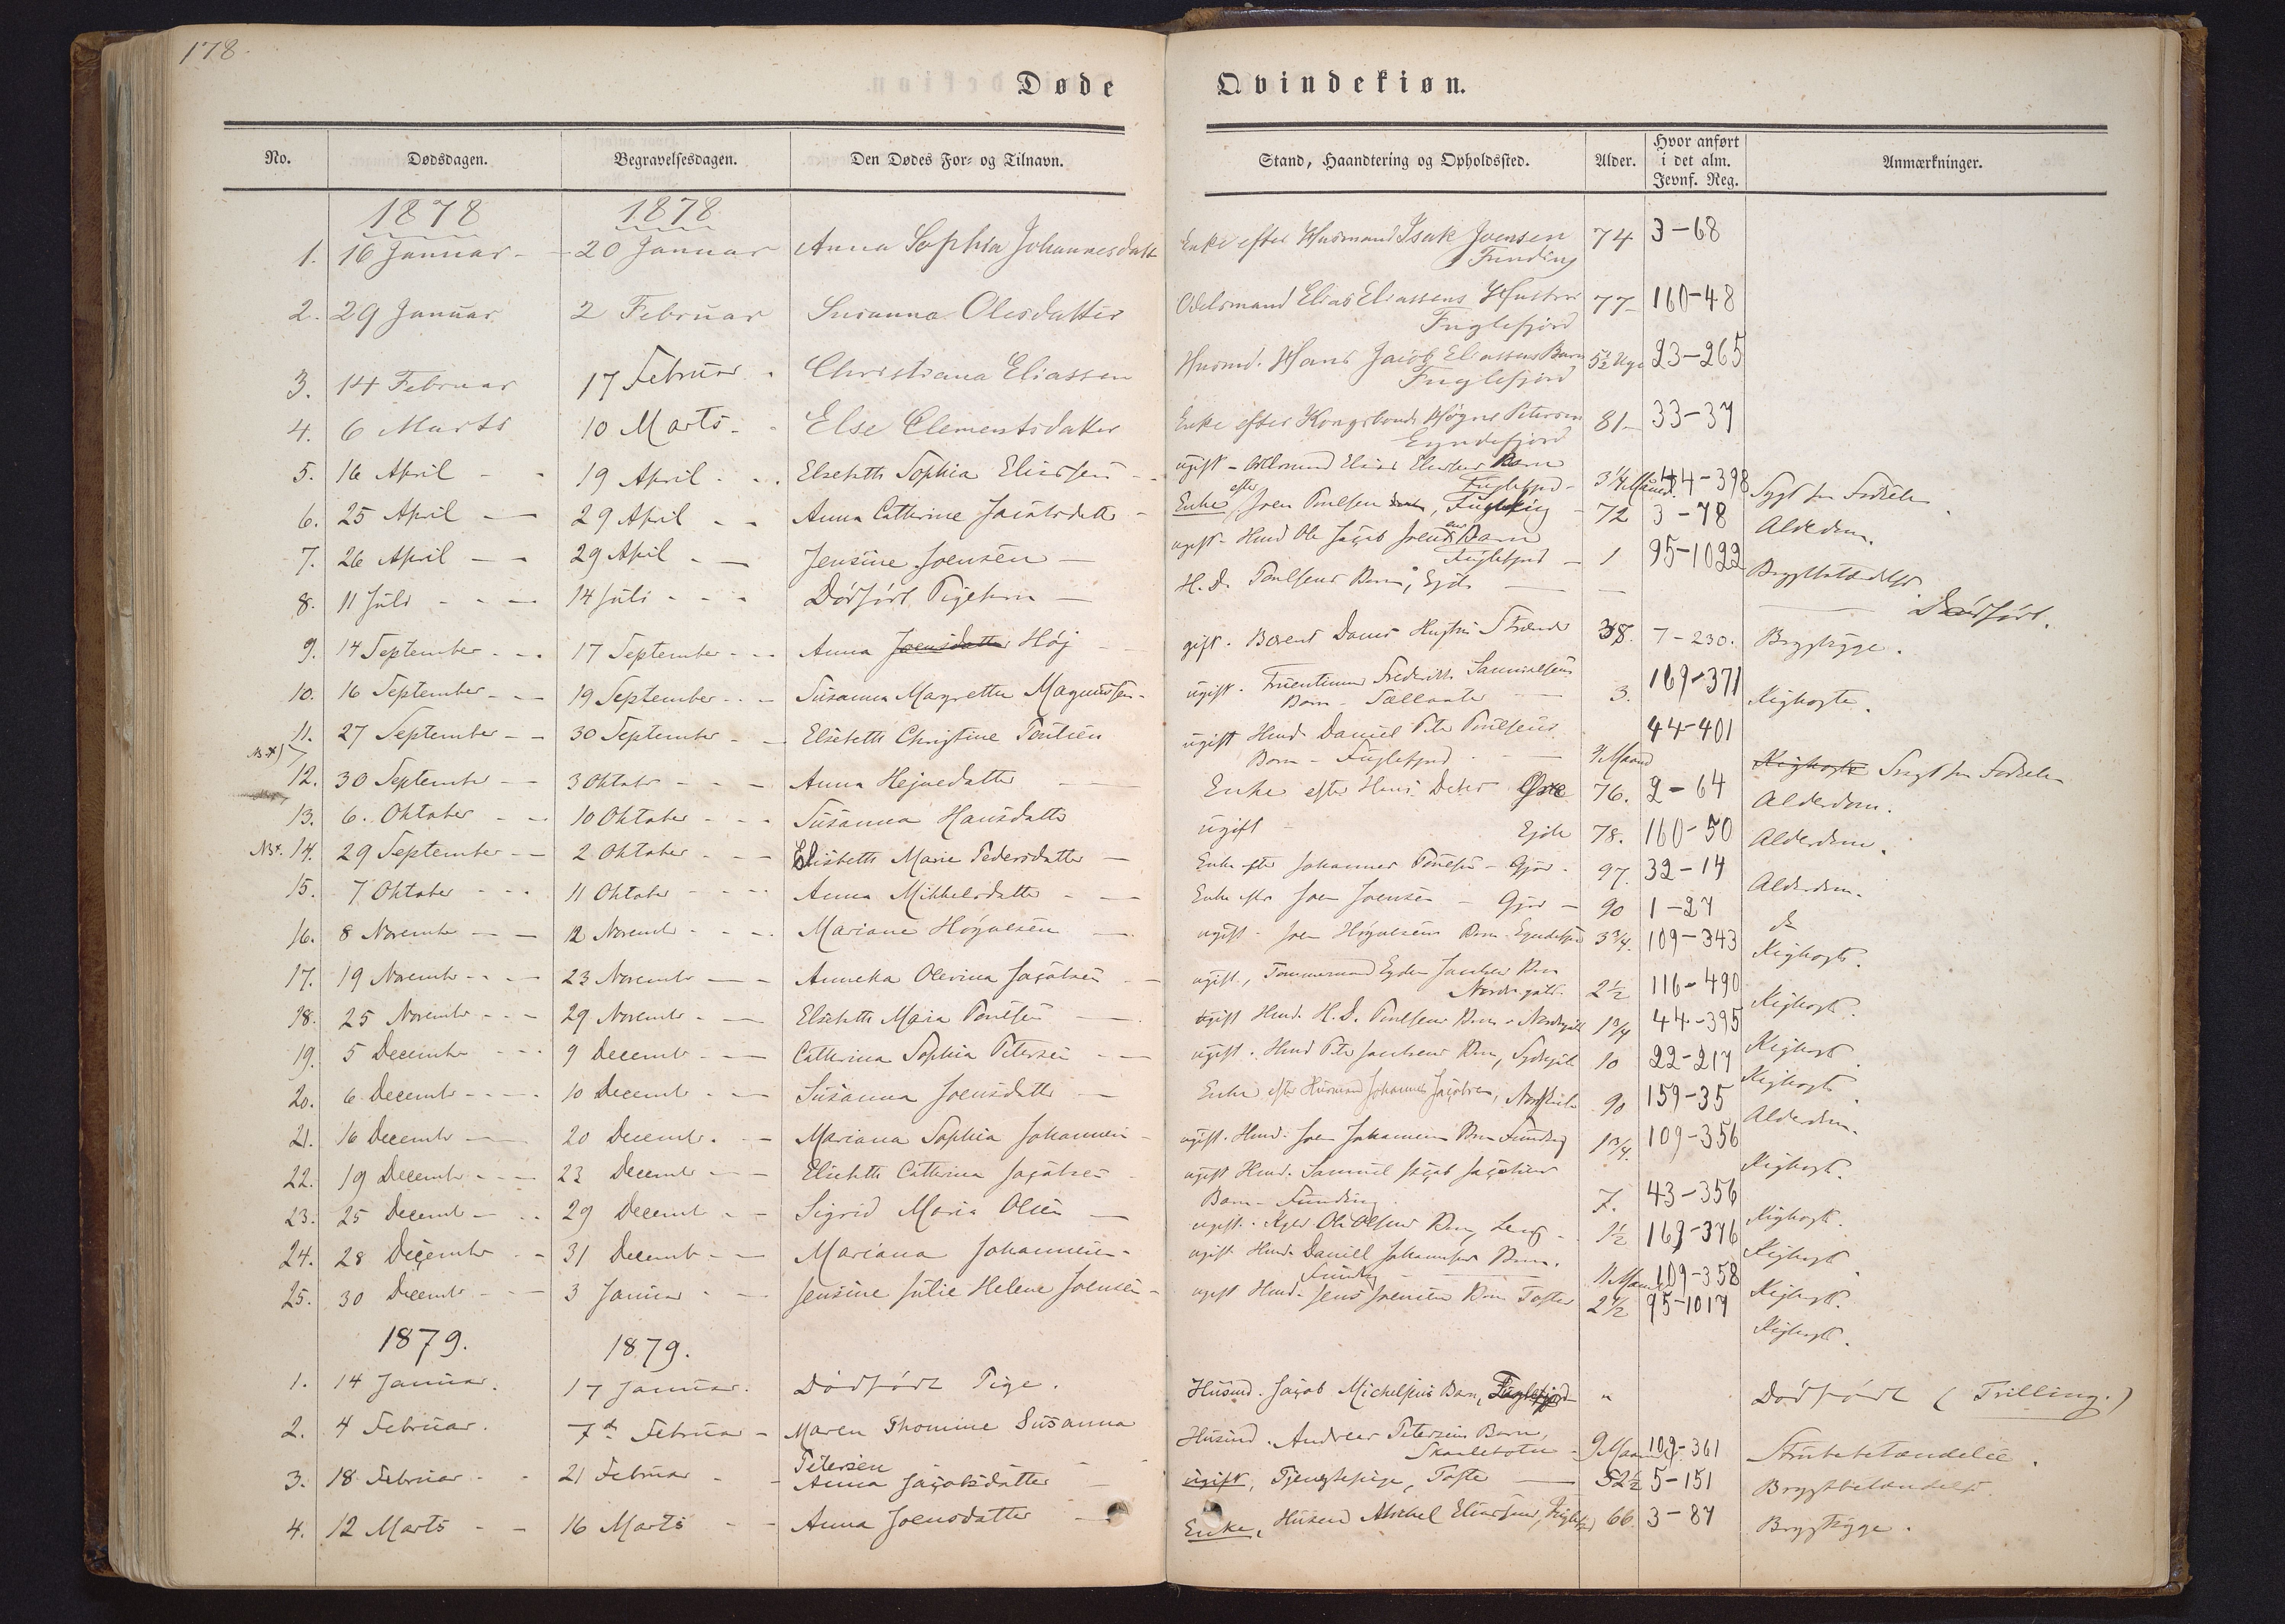 178.
Døde Qvindekiøn.
No. Dødsdagen. Begravelsesdagen. Den Dødes For- og Tilnavn. Stand, Haandtering og Opholdssted. Alder. Hvor anført i det alm. Jevnf. Reg. Anmærkninger.
1878 1878
1. 16 Januar - 20 Januar Anna Sophia Johannesdatt Enke efter Husmand Isak Joensen 74 3-68
Funding
2. 29 Januar 2 Februar Susanna Olesdatter Odelsmand Elias Eliassens Hustru 77 160-48
Fuglefjord
3. 14 Februar 17 Februar Christiana Eliassen Husmd. Hans Jacob Eliassens Barn 5½ Uge 23-265
Fuglefjord
4. 6 Marts 10 Marts Else Clementsdatter Enke efter Kongsbonde Høgne Petersen 81 33-37
Eyndefjord
5. 16 April 19 April Elsebeth Sophia Eliassen ugift - Odelsmand Elias Eliassens Barn
Fuglefjord 3¼ Maaned. 44-398 Sygd fra Fødselen
6. 25 April 29 April Anna Cathrine Jacobsdatter Enke efter Joen Poulsen, 72 3-78 Alderdom.
7. 26 April 29 April Jensine Joensen ugift - Husmd Ole Jacob Joensens Barn
Fuglefjord 1 95-1022 Brystbetændelse
8. 11 Juli 14 Juli Dødfødt Pigebarn H. D. Poulsens Barn, Ejde Dødfødt.
9. 14 September 17 September Anna Joensdatter Høj gift. Hustru 38. 7-230. Brystsyge.
10. 16 September 19 September Susanna Magretha Magnussen ugift. Fruentimmer Frederikke Samuelsens
Barn - 3. 169-371 Kighoste.
11. 27 September 30 September Elsebeth Christine Poulsen ugift Husmd. Daniel Peter Poulsens
Barn - Fuglefjord Maaned 44-401 Kighoste Svag fra Fødselen
12. 30 September 3 Oktober Anna Hejnedatter Enke efter Hans 76. 2-64 Alderdom.
13. 6. Oktober 10 Oktober Susanna Hansdatter ugift Ejde 78. 160-50 Alderdom.
14. 29 September 2 Oktober Elisbeth Marie Pedersdatter Enke efter Johannes Poulsen - Gjov. 97. 32-14 Alderdom.
15. 7 Oktober 11 Oktober Anna Mikkelsdatter Enke efter Joen Joensen - Gjov 90 1-27 do
16. 8 November 12 November Mariane Høgnesen ugift. Joen Høgnesens Barn Eyndefjord 3¾. 109-343 Kighoste.
17. 19 November 23 November Annika Olevina Jacobsen ugift, Tømmermand Barn
Nordregøte 2½ 116-490 Kighoste.
18. 25 November 29 November Elsebeth Maria Poulsen ugift Husmd. H. D. Poulsens Barn Nordregøte 1¾ 44-395 Kighoste
19. 5 December 9 December Cathrina Sophia Petersen ugift. Husmd Peter Jacobsens Barn, Sydregøte 10 22-217 Kighoste
20. 6 December 10 December Susanna Joensdatter Enke efter Husmand Johannes Jacobsen, 90 159-35 Alderdom.
21. 16 December 20 December Mariana Sophia Johannesen ugift. Husmd. Joen Johannesens Barn Funding 1¾. 109-356 Kighoste.
22. 19 December 23 December Elsebeth Cathrina Jacobsen ugift Husmd. Samuel Jacob Jacobsens
Barn - Funding 7. 43-356 Kighoste.
23. 25 December 29 December Sigrid Maria Olsen ugift. Ole Olsens Barn, 1½ 169-376 Kighoste
24. 28 December 31 December Mariana Johannesen ugift Husmd Daniel Johannesens Barn.
Funding 11 Maaned 109-358 Kighoste.
25. 30 December 3 Januar Jensine Julie Helene Joensen ugift Husmd. Jens Joensens Barn Tofte 2½ 95-1017 Kighoste.
1879. 1879.
1. 14 Januar. 17 Januar. Dødfødt Pige. Husmd. Jacob Michelsens Barn, Fuglefjord " Dødfødt (Trilling.)
2. 4 Februar. 7de Februar - Maren Thomine Susanna Husmd. Andreas Petersens Barn,
Petersen 9 Maaned 109-361 Strubebetændelse.
3. 18 Februar 21 Februar Anna Jacobsdatter ugift, Tjenestepige, Tofte 52½ 5-151 Brystbetændelse.
4. 12 Marts 16 Marts Anna Joensdatter Enke, Husmd Michel Eliassens, Fuglefjord 66. 3-87 Brystsyge.